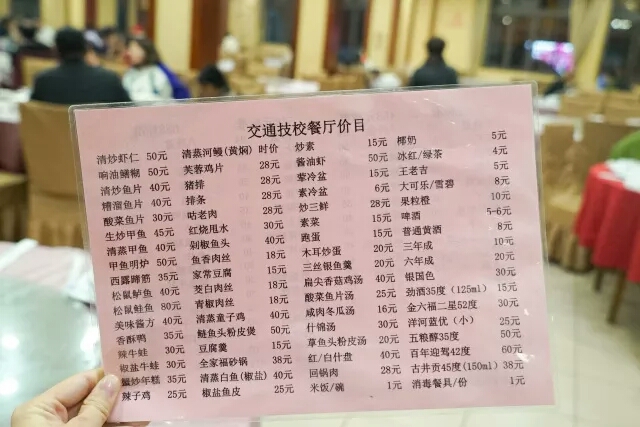 交通技校餐厅价目
清炒虾仁 50元
响油鳝糊 50元
清炒鱼片 40元
糟溜鱼片 40元
酸菜鱼片 30元
生炒甲鱼 45元
清蒸甲鱼 40元
甲鱼明炉 50元
西露蹄筋 35元
松鼠鲈鱼 40元
松鼠鮭鱼 80元
美味酱方 40元
香酥鸭 35元
辣牛蛙 30元
椒盐牛蛙 30元
炒年糕 35元
辣子鸡 25元
清蒸河鳗(黄焖) 时价
芙蓉鸡片 28元
猪排 28元
排条 28元
咕老肉 28元
红烧甩水 30元
剁椒鱼头 40元
鱼香肉丝 18元
家常豆腐 15元
茭白肉丝 18元
青椒肉丝 18元
清蒸童子鸡 40元
鲢鱼头粉皮煲 50元
豆腐羹 15元
全家福砂锅 38元
清蒸白鱼(椒盐) 40元
椒盐鱼皮 25元
炒素 15元
酱油虾 50元
荤冷盆 15元
素冷盆 6元
炒三鲜 28元
素菜 15元
跑蛋 15元
木耳炒蛋 20元
三丝银鱼羹 20元
扁尖香菇鸡汤 40元
酸菜鱼片汤 25元
咸肉冬瓜汤 16元
什锦汤 30元
草鱼头粉皮汤 20元
红/白什盘 40元
回锅肉 28元
米饭/碗 1元
椰奶 5元
冰红/绿茶 4元
王老吉 5元
大可乐/雪碧 8元
果粒橙 10元
啤酒 5-6元
普通黄酒 8元
三年成 10元
六年成 20元
银国色 30元
劲酒35度(125ml) 15元
金六福二星52度 30元
洋河蓝优(小) 25元
五粮醇35度 50元
百年迎驾42度 60元
古井贡45度(150ml) 38元
消毒餐具/份 1元